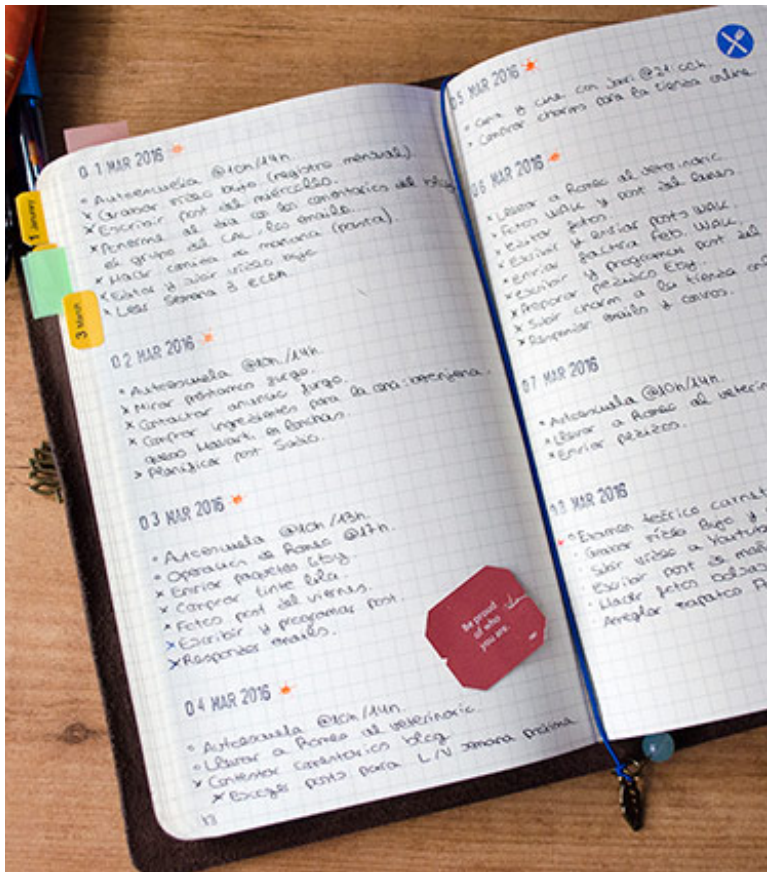 1 January
3 March
01 MAR 2016
Autoescuela @10h/14h.
Grabar vídeo bujo (registro mensual).
Escribir post del miércoles.
Ponerme al día con los comentarios del blog,
el grupo del CAL, los emails...
Hacer comida de mañana (pasta).
Editar y subir vídeo bujo
Leer Semana 3 ECDA
02 MAR 2016
Autoescuela @10h/14h.
Mirar préstamos Jurgo.
Contactar anuncio Jurgo.
Comprar ingredientes para la cena: berenjena,
queso Havarti en lonchas.
Planificar post
03 MAR 2016
Autoescuela @10h/13h.
Operación de Romeo @17h.
Enviar paquetes Etsy.
Comprar tinte lila.
Fotos post del viernes.
Escribir y programar post.
Responder emails.
04 MAR 2016
Autoescuela @10h/14h.
Llevar a Romeo al veterinario.
Contestar comentarios blog
Escoger posts para L/V semana próxima
Be proud
of who
you are.
05 MAR 2016
Cena y cine con Javi @21:00h.
Comprar charms para la tienda online
06 MAR 2016
Llevar a Romeo al veterinario.
Fotos WALK y post del lunes.
Editar fotos.
Escribir y enviar posts WALK
Enviar factura feb. WALK.
Escribir y programar post del
Preparar pedidos Etsy.
Subir charm a la tienda onl
Responder emails y convos.
07 MAR 2016
Autoescuela @10h/14h.
Llevar a Romeo al veterin
Enviar pedidos.
08 MAR 2016
Examen teórico carnet
Grabar vídeo Bujo y
Subir vídeo a Youtub
Escribir post de mañ
Hacer fotos bolsas
Arreglar zapatos